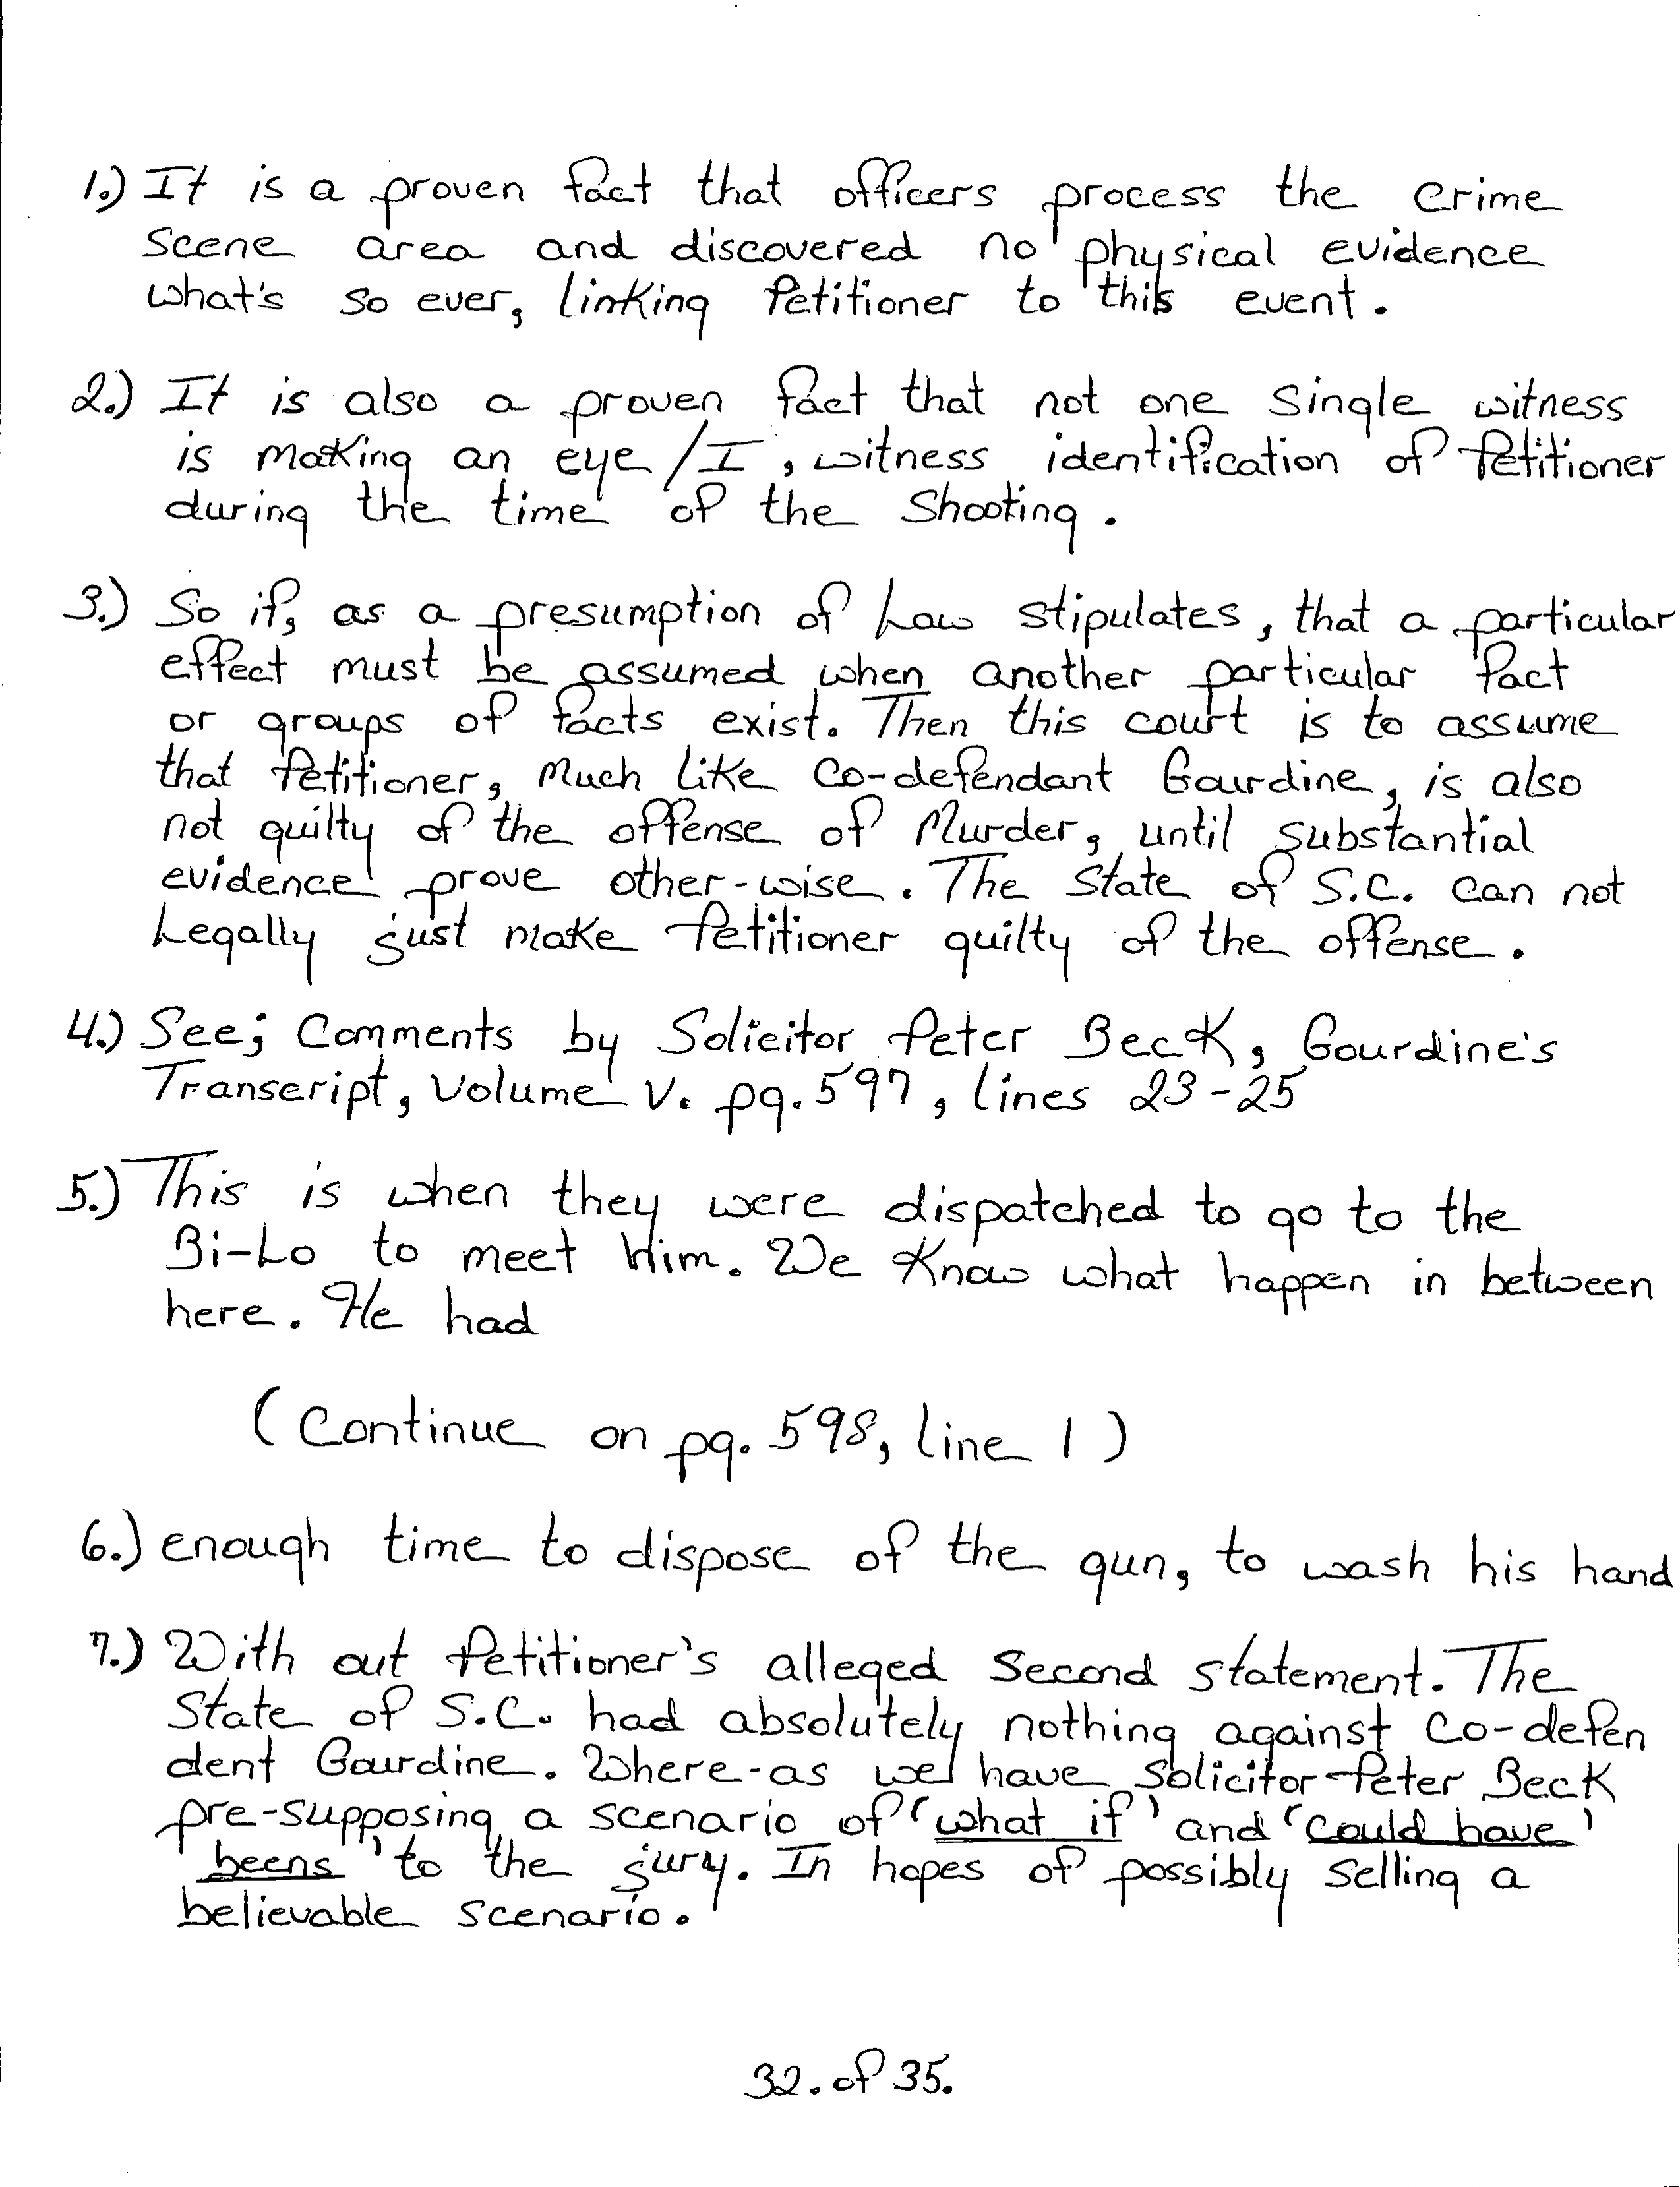 1.) It is a proven fact that officers process the crime
scene area and discovered no physical evidence
what's so ever, linking Petitioner to this event.
2.) It is also a proven fact that not one single witness
is making an eye/I, witness identification of Petitioner
during the time of the shooting.
3.) So if, as a presumption of Law stipulates, that a particular
effect must be assumed when another particular fact
or groups of facts exist. Then this court is to assume
that Petitioner, Much like Co-defendant Gourdine, is also
not guilty of the offense of Murder, until substantial
evidence prove other-wise. The State of S.C. can not
Legally just make Petitioner guilty of the offense.
4.) See; Comments by Solicitor Peter Beck, Gourdine's
Transcript, Volume V. pg. 597, lines 23-25
5.) This is when they were dispatched to go to the
Bi-Lo to meet Him. We Know what happen in between
here. He had
(Continue on pg. 598, line 1)
6.) enough time to dispose of the gun, to wash his hand
7.) With out Petitioner's alleged Second statement. The
State of S.C. had absolutely nothing against Co-defen
dent Gourdine. Where-as we have Solicitor Peter Beck
pre-supposing a scenario of 'what if' and 'could have'
beens' to the jury. In hopes of possibly selling a
believable scenario.
32. of 35.